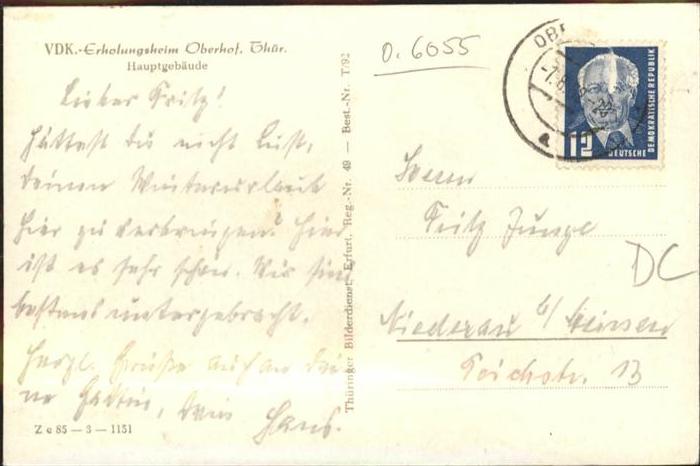 VDK.-Erholungsheim Oberhof, Thür.
Hauptgebäude
Lieber Fritz!
Hättest du nicht Lust,
deinen Winterurlaub
hier zu verbringen? Hier
ist es sehr schön. Wir sind
bestens untergebracht.
Herzl. Grüße auch an dei-
ne Gattin, dein Hans.
Z c 85 — 3 — 1151
Thüringer Bilderdienst, Erfurt, Reg.-Nr. 49 — Best.-Nr. T/92
0.6055
OBE
a
12
DEUTSCHE
DEMOKRATISCHE REPUBLIK
Herrn
Fritz
Niederau b/Meissen
Teichstr. 13
DC